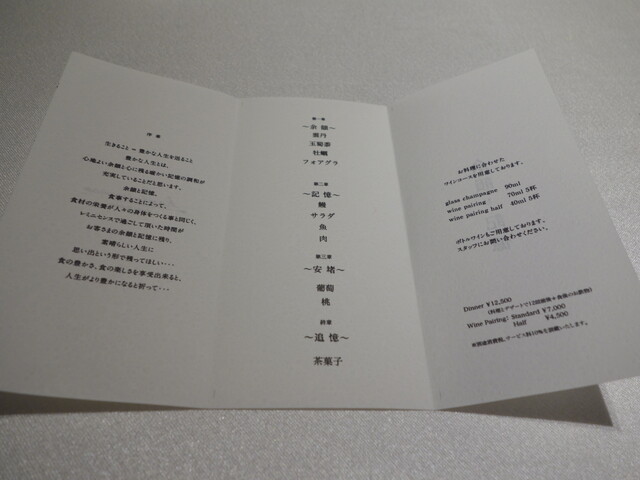 序章
生きること = 豊かな人生を送ること
豊かな人生とは、
心地よい余韻と心に残る暖かい記憶の調和が
充実していることだと思います。
余韻と記憶。
食事することによって、
食材の栄養が人々の身体をつくる事と同じく、
レミニセンスで過ごして頂いた時間が
お客さまの余韻と記憶に残り、
素晴らしい人生に
思い出という形で残ってほしい・・・
食の豊かさ、食の楽しさを享受出来ると、
人生がより豊かになると祈って・・・
第一章
〜余韻〜
雲丹
玉蜀黍
牡蠣
フォアグラ
第二章
〜記憶〜
鰻
サラダ
魚
肉
第三章
〜安堵〜
葡萄
桃
終章
〜追憶〜
茶菓子
お料理に合わせた
ワインコースを用意しております。
glass champagne 90ml
wine pairing 70ml 5杯
wine pairing half 40ml 5杯
ボトルワインもご用意しております。
スタッフにお問い合わせください。
Dinner ¥12,500
Wine Pairing: Standard ¥7,000
Half ¥4,500
※別途消費税、サービス料10%を頂戴いたします。